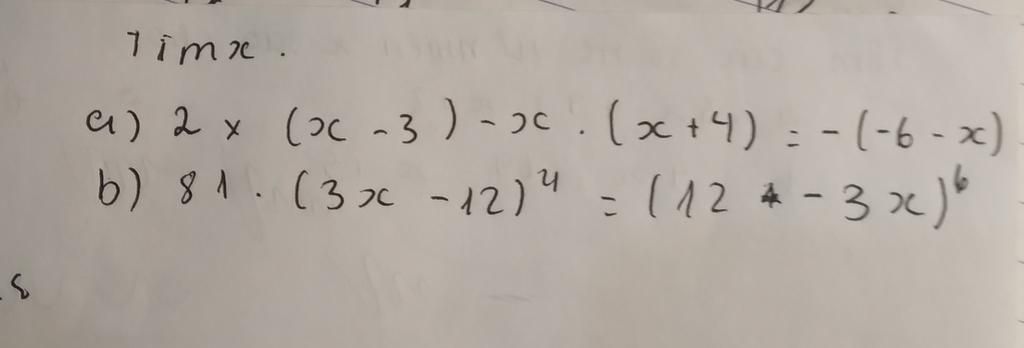 Tìm x.
a) 2 × (x - 3) - x . (x + 4) = - (-6 - x)
b) 81 . (3x - 12)⁴ = (12 - 3x)⁶